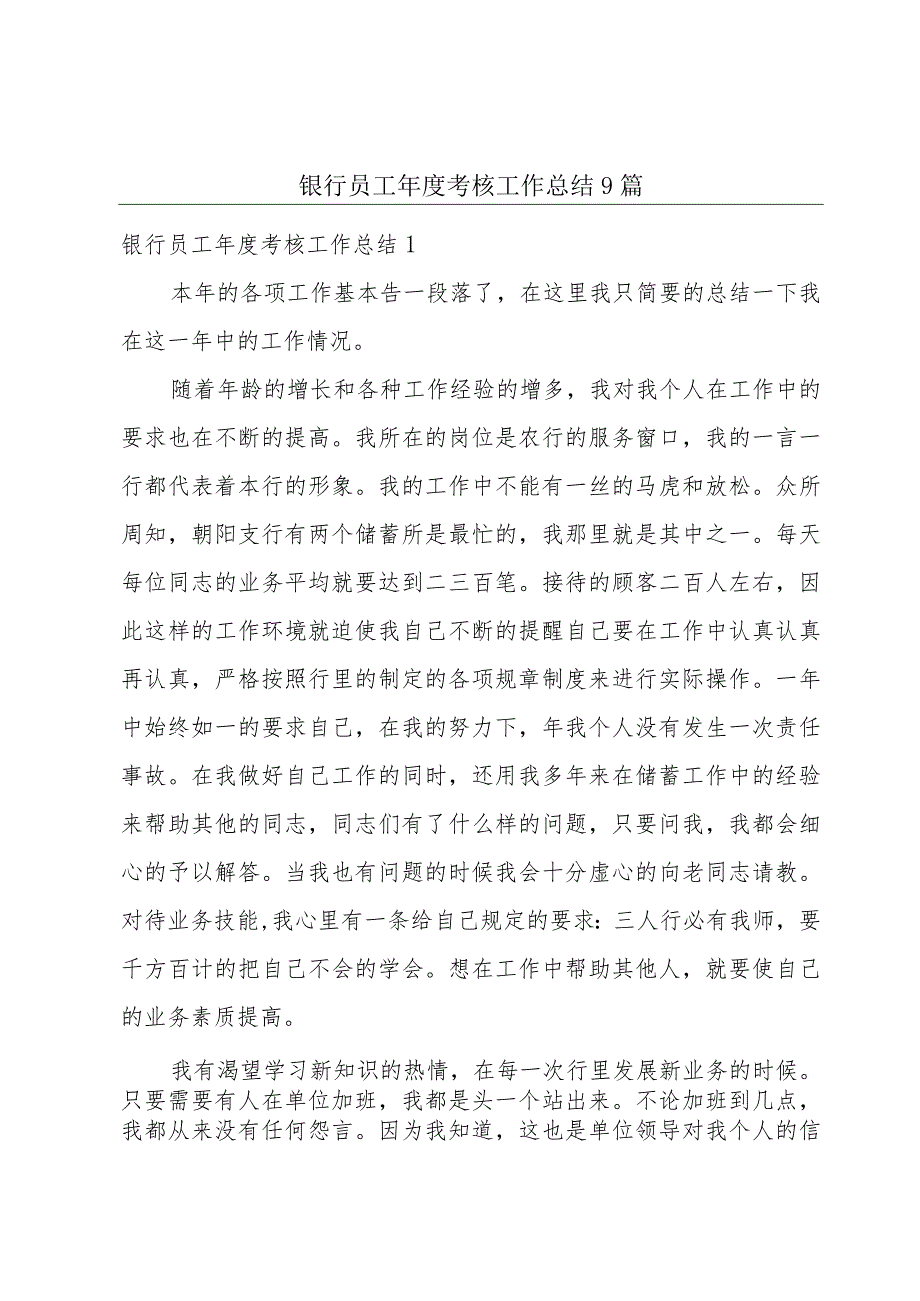 银行员工年度考核工作总结 9 篇
银行员工年度考核工作总结 1
本年的各项工作基本告一段落了，在这里我只简要的总结一下我
在这一年中的工作情况。
随着年龄的增长和各种工作经验的增多，我对我个人在工作中的
要求也在不断的提高。我所在的岗位是农行的服务窗口，我的一言一
行都代表着本行的形象。我的工作中不能有一丝的马虎和放松。众所
周知，朝阳支行有两个储蓄所是最忙的，我那里就是其中之一。每天
每位同志的业务平均就要达到二三百笔。接待的顾客二百人左右，因
此这样的工作环境就迫使我自己不断的提醒自己要在工作中认真认真
再认真，严格按照行里的制定的各项规章制度来进行实际操作。一年
中始终如一的要求自己，在我的努力下，年我个人没有发生一次责任
事故。在我做好自己工作的同时，还用我多年来在储蓄工作中的经验
来帮助其他的同志，同志们有了什么样的问题，只要问我，我都会细
心的予以解答。当我也有问题的时候我会十分虚心的向老同志请教。
对待业务技能,我心里有一条给自己规定的要求：三人行必有我师，要
千方百计的把自己不会的学会。想在工作中帮助其他人，就要使自己
的业务素质提高。
我有渴望学习新知识的热情，在每一次行里发展新业务的时候。
只要需要有人在单位加班，我都是头一个站出来。不论加班到几点，
我都从来没有任何怨言。因为我知道，这也是单位领导对我个人的信